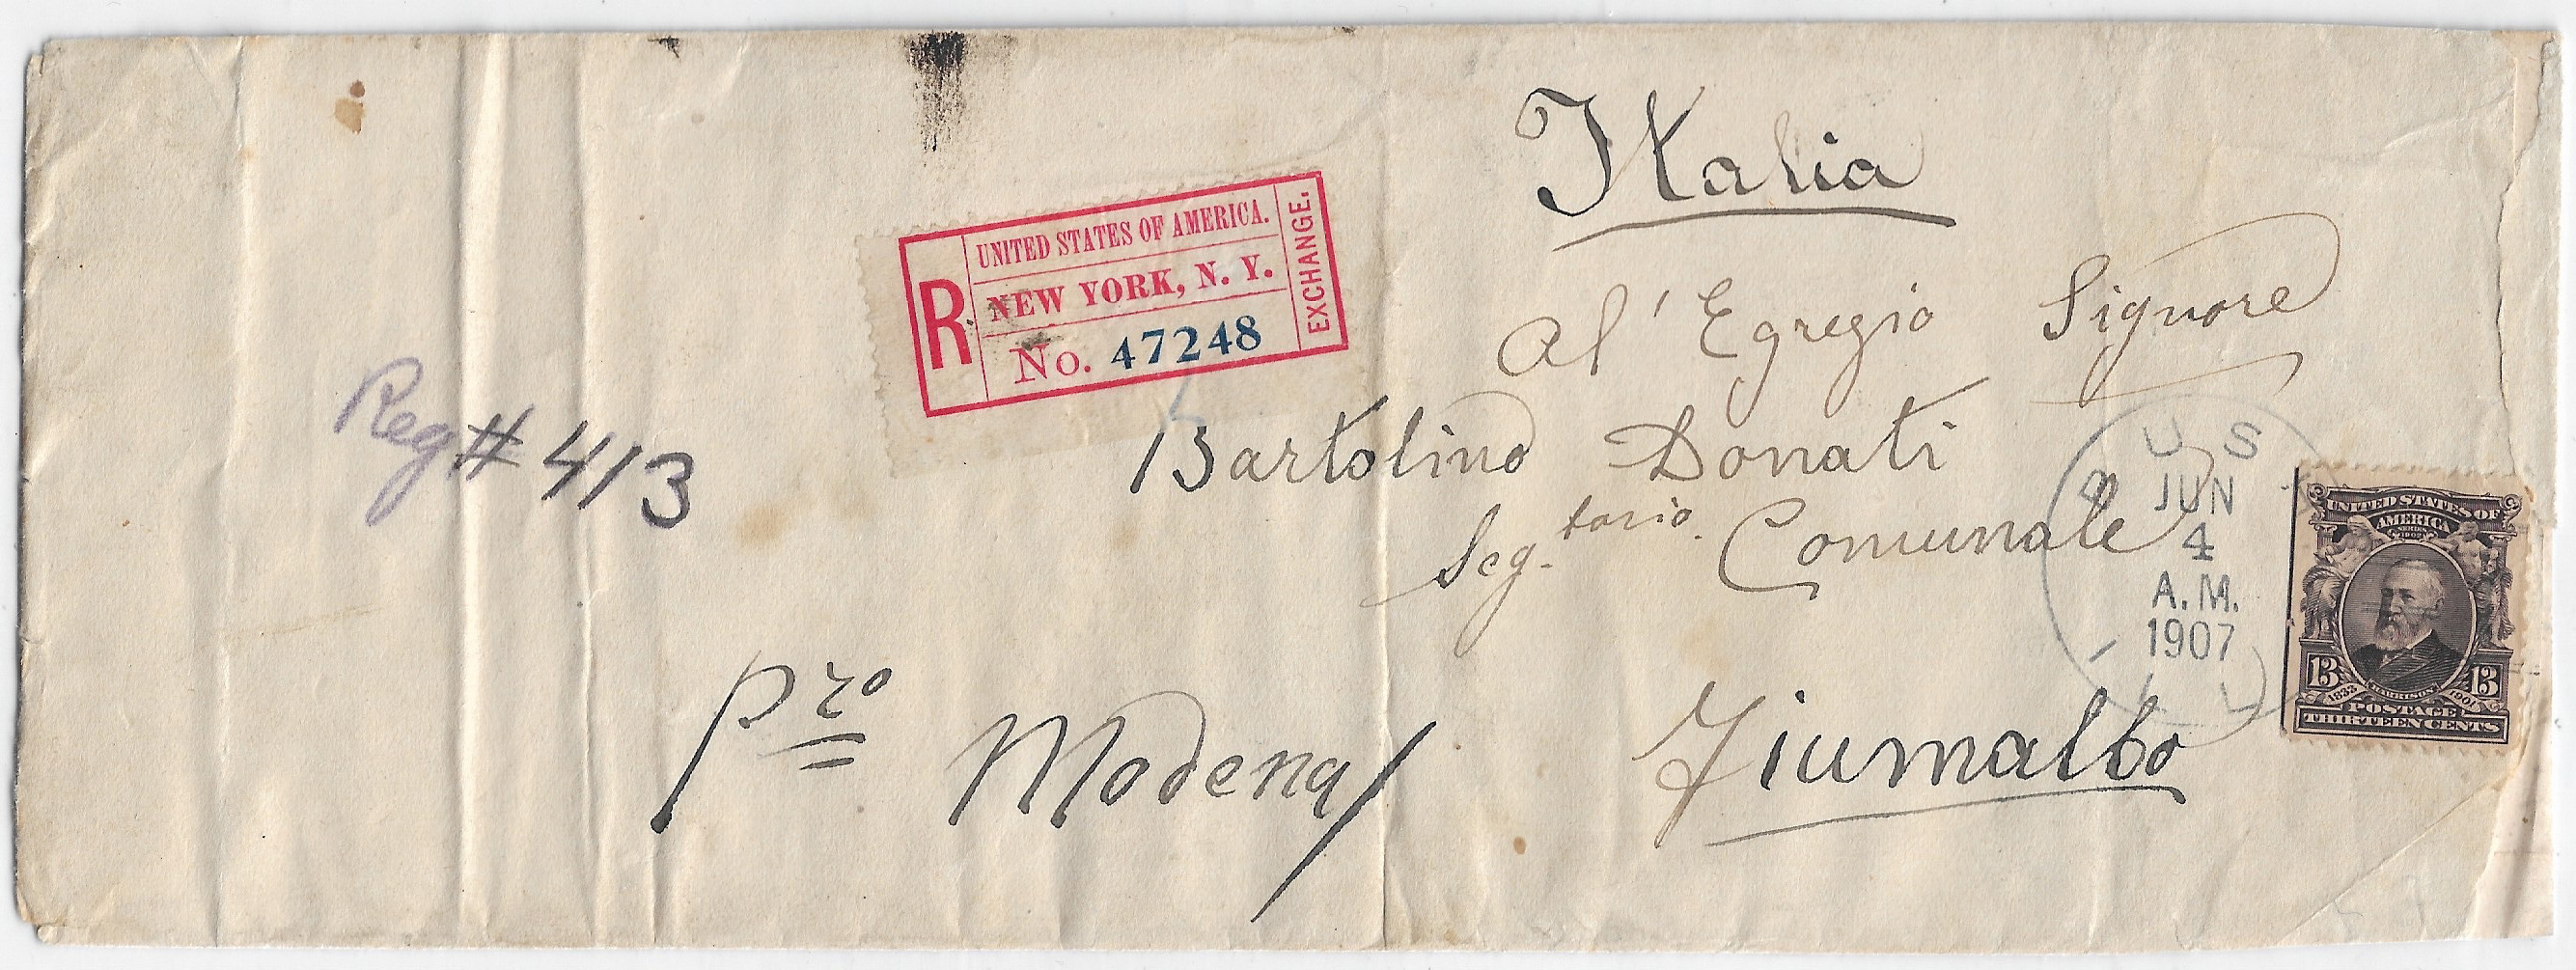 Italia
UNITED STATES OF AMERICA.
R NEW YORK, N. Y.
No. 47248
EXCHANGE.
Al' Egregio Signore
Bartolino Donati
Seg.tario. Comunale
Reg # 413
Fiumalbo
Pro Modena
U S
JUN
4
A.M.
1907
UNITED STATES OF
AMERICA
SERIES 1902
13 13
HARRISON
1833 1901
POSTAGE
THIRTEEN CENTS